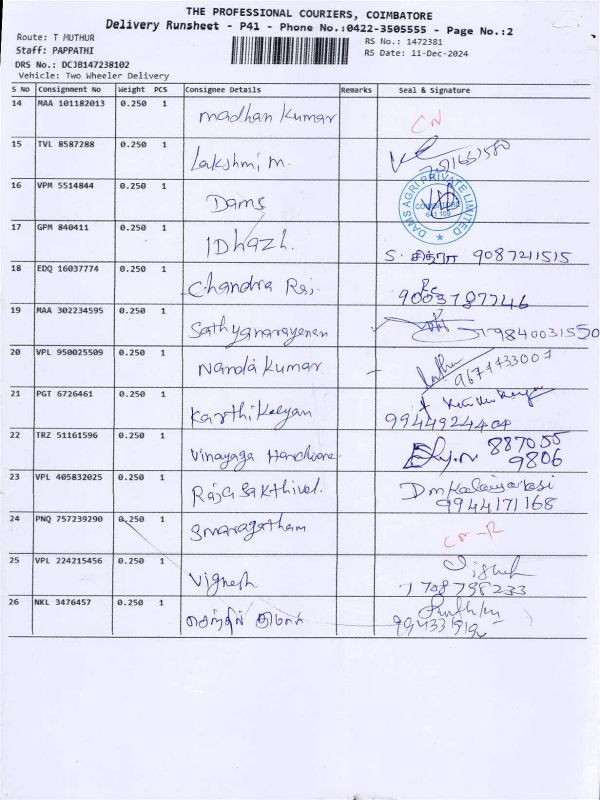 THE PROFESSIONAL COURIERS, COIMBATORE
Delivery Runsheet - P41 - Phone No.:0422-3505555 - Page No.:2
Route: T MUTHUR
RS No.: 1472381
Staff: PAPPATHI
RS Date: 11-Dec-2024
DRS No.: DCJB147238102
Vehicle: Two Wheeler Delivery
S No Consignment No Weight PCS Consignee Details Remarks Seal & Signature
14 MAA 101182013 0.250 1 Madhan Kumar CN
15 TVL 8587288 0.250 1 Lakshmi m.
16 VPM 5514844 0.250 1 Dams DAMS AGRI PRIVATE LIMITED
17 GPM 840411 0.250 1 IDhazh. S. சித்ரா 9087211515
18 EDQ 16037774 0.250 1 Chandra Raj.
19 MAA 302234595 0.250 1 Sathyanarayanan 9840031550
20 VPL 950025509 0.250 1 Nanda Kumar
21 PGT 6726461 0.250 1 Karthikeyan 9944924404
22 TRZ 51161596 0.250 1 Vinayaga Hardware 887055
9806
23 VPL 405832025 0.250 1 Raja Sakthivel. 9944171168
24 PNQ 757239290 0.250 1 Smaragatham
25 VPL 224215456 0.250 1 Vignesh 1708798233
26 NKL 3476457 0.250 1 செந்தில் குமார்